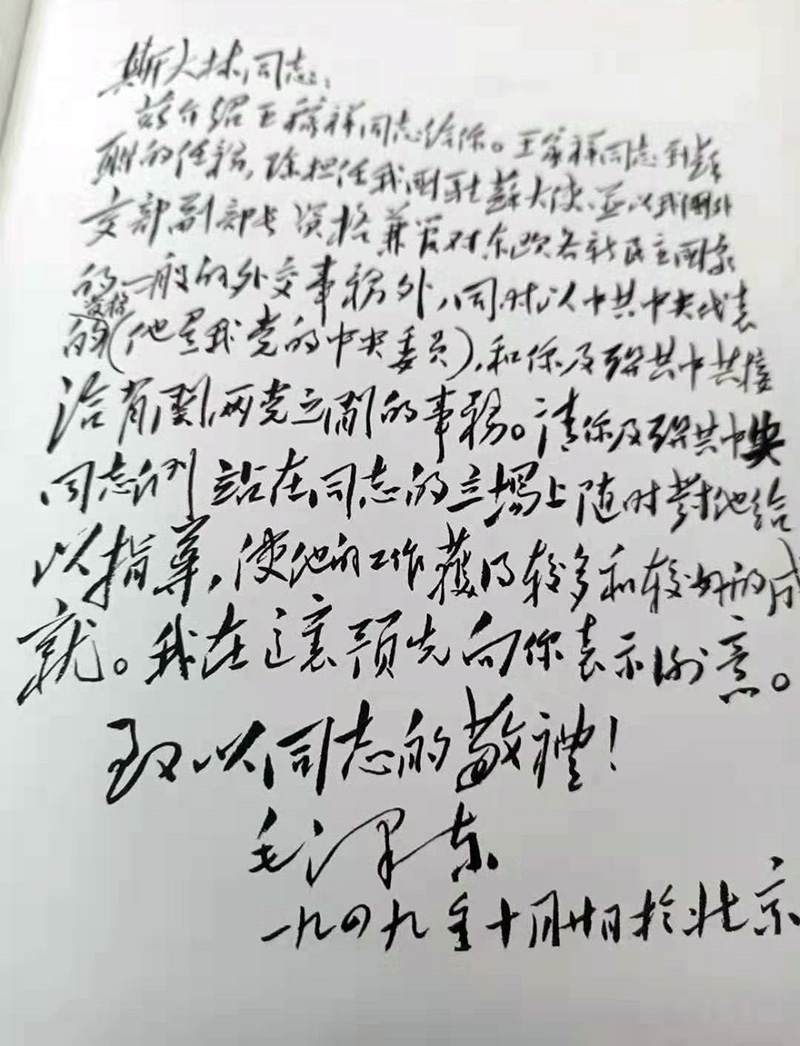 斯大林同志：
兹介绍王稼祥同志给你。王稼祥同志到蘇
联的任務，除担任我国驻蘇大使，并以我国外
交部副部长资格兼管对东欧各新民主国家
的一般的外交事務外，同时以中共中央代表
资格
的（他是我党的中央委员），和你及联共中央接
洽有関两党之間的事務。请你及联共中央
同志们站在同志的立場上随时對他给
以指導，使他的工作獲得较多和较好的成
就。我在這裏预先向你表示谢意。
致以同志的敬禮！
毛泽东
一九四九年十月廿日於北京